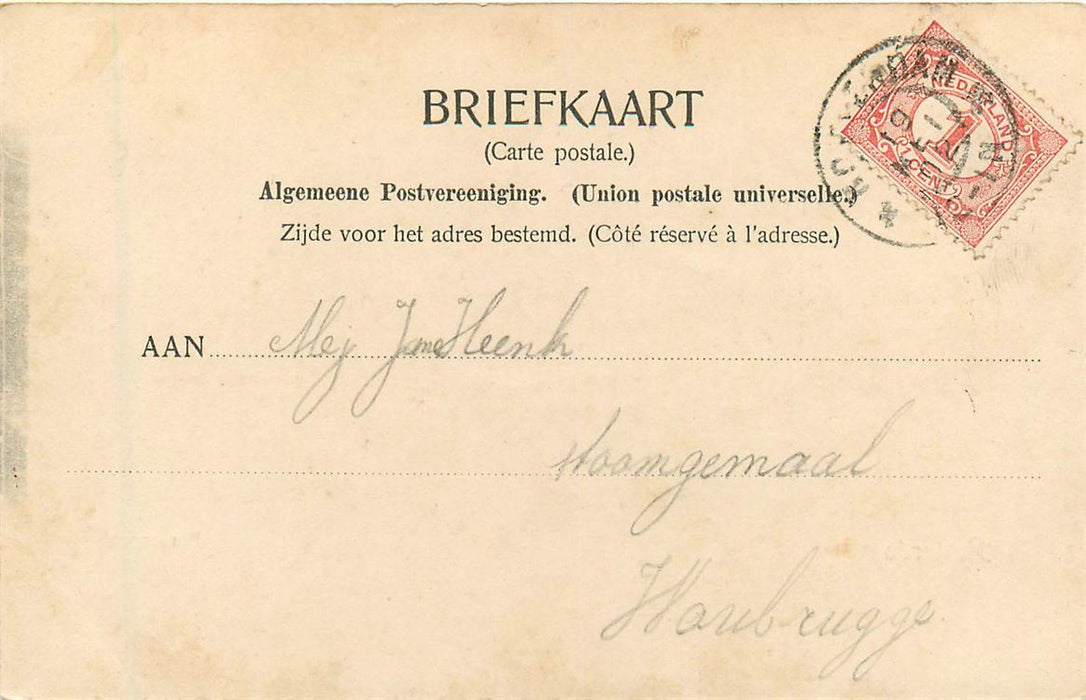 BRIEFKAART
(Carte postale.)
Algemeene Postvereeniging. (Union postale universelle.)
Zijde voor het adres bestemd. (Côté réservé à l'adresse.)
NEDERLAND
1
1 CENT
AAN Mej Heenk
stoomgemaal
Woubrugge